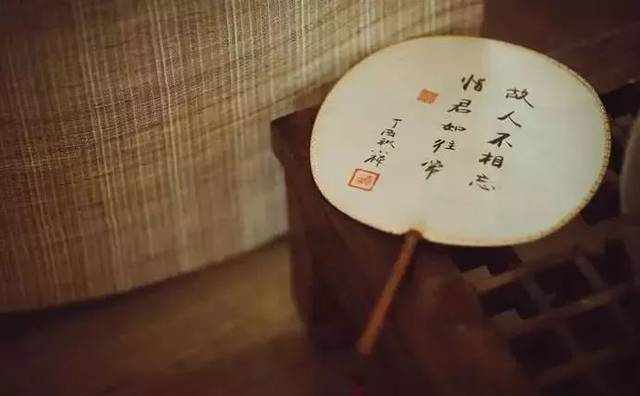 故人不相忘
惜君如往常
丁酉秋